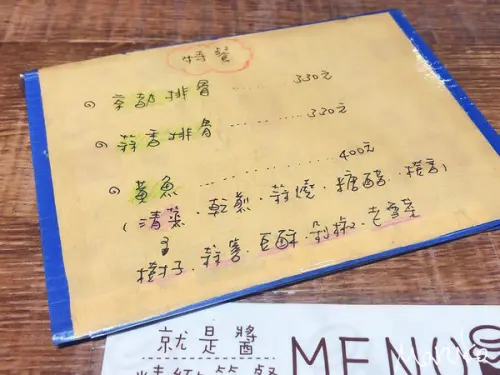 特餐
京都排骨 ...... 330元
蒜香排骨 ............ 330元
黃魚 ............ 400元
(清蒸・乾煎・蒜燒・糖醋・椒言)
樹子・蒜蓉・豆酥・剁椒・老雪菜
就是醬
精緻簡餐
MENU